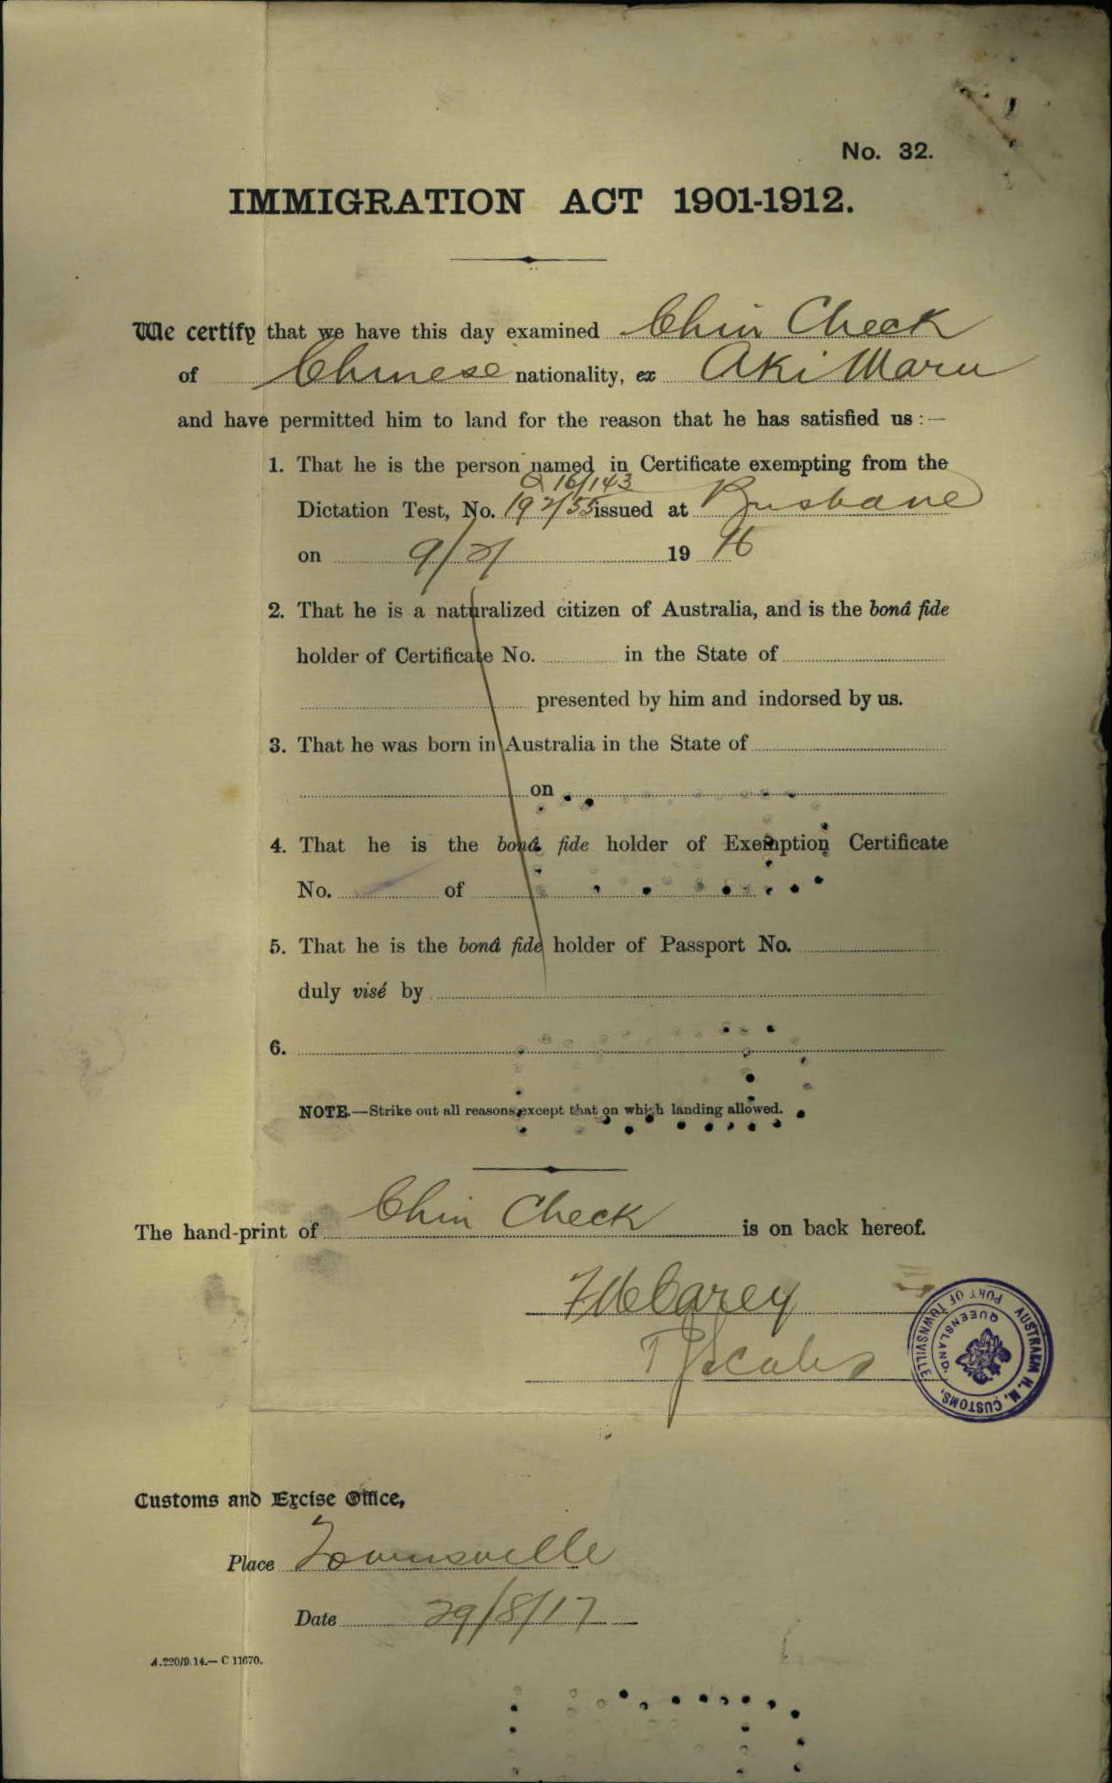 No. 32.
IMMIGRATION ACT 1901-1912.
We certify that we have this day examined Chin Check
of Chinese nationality, ex Aki Maru
and have permitted him to land for the reason that he has satisfied us :—
1. That he is the person named in Certificate exempting from the
Q 16/143
Dictation Test, No. 192/55 issued at Brisbane
on 9/2/ 19 16
2. That he is a naturalized citizen of Australia, and is the bonâ fide
holder of Certificate No. in the State of
presented by him and indorsed by us.
3. That he was born in Australia in the State of
on
4. That he is the bonâ fide holder of Exemption Certificate
No. of
5. That he is the bonâ fide holder of Passport No.
duly visé by
6.
NOTE.—Strike out all reasons except that on which landing allowed.
The hand-print of Chin Check is on back hereof.
Carey
Scales
AUSTRALIA H. M. CUSTOMS,
PORT OF TOWNSVILLE
QUEENSLAND.
Customs and Excise Office,
Place Townsville
Date 29/8/17
A.220/9.14.—C 11670.